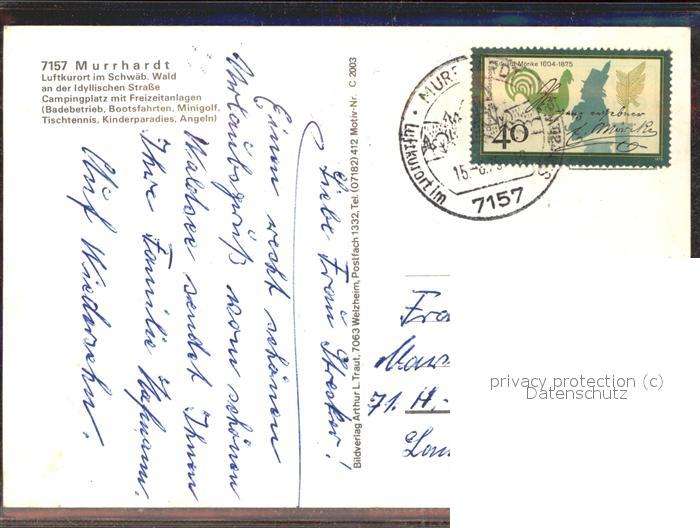 7157 Murrhardt
Luftkurort im Schwäb. Wald
an der Idyllischen Straße
Campingplatz mit Freizeitanlagen
(Badebetrieb, Bootsfahrten, Minigolf,
Tischtennis, Kinderparadies, Angeln)
Liebe Frau
Einen recht schönen
Urlaubsgruß vom schönen
Waldsee sendet Ihnen
Ihre Familie Hofmann.
Auf Wiedersehn.
Bildverlag Arthur L. Traut, 7063 Welzheim, Postfach 1332, Tel. (07182) 412 Motiv-Nr. C 2003
Eduard Mörike 1804-1875
40
E. Mörike
Luftkurort im
7157
71. H.-
privacy protection (c)
Datenschutz